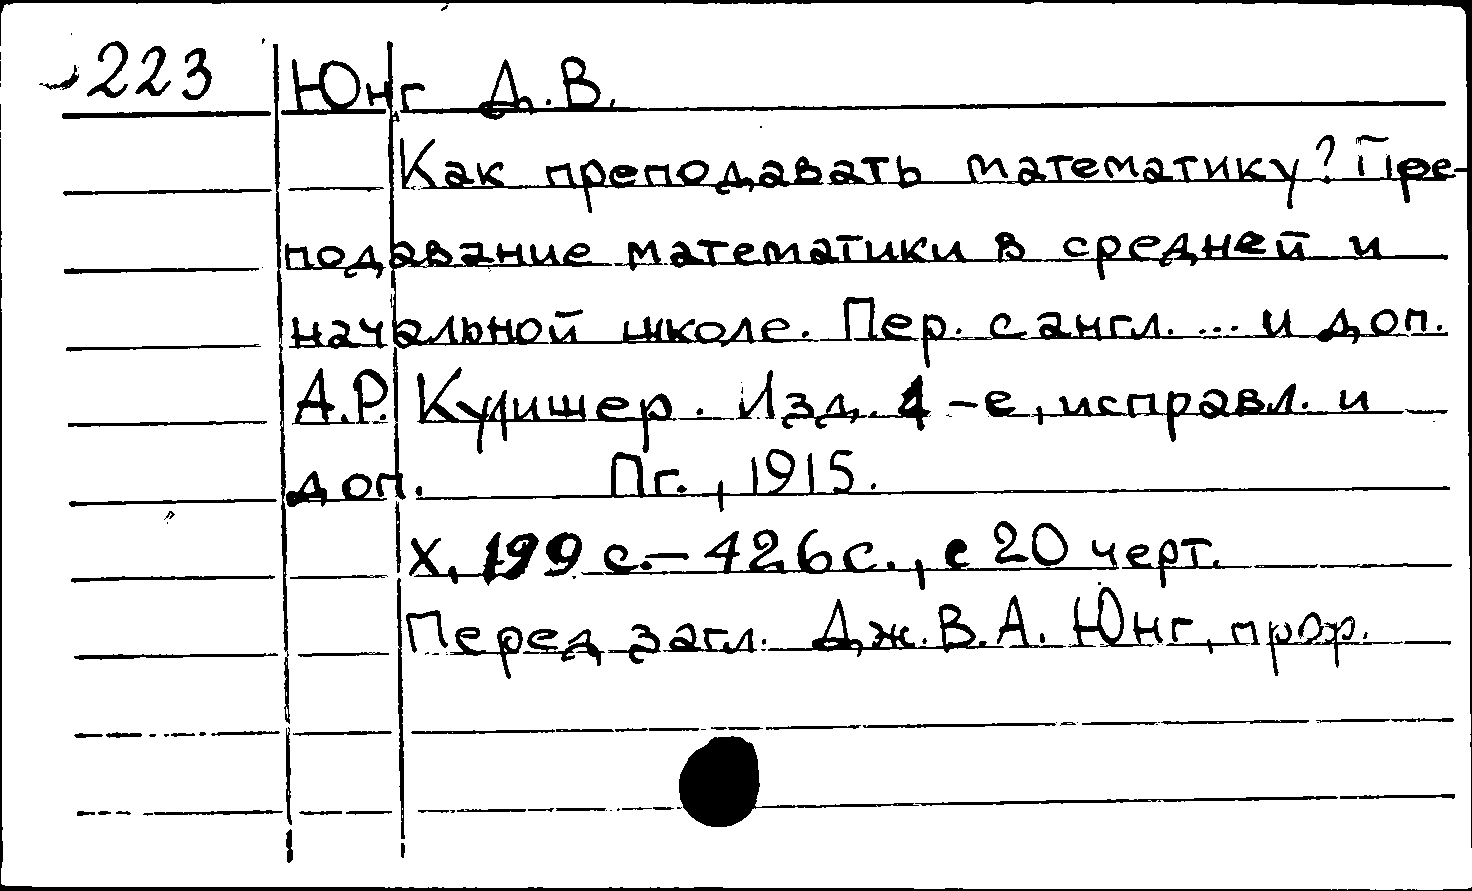 223 Юнг Д.В.
Как преподавать математику? Пре-
подавание математики в средней и
начальной школе. Пер. с англ. ... и доп.
А.Р. Кулишер. Изд. 4-е, исправл. и
доп. Пг., 1915.
X, 199 с.–426 с., с 20 черт.
Перед загл. Дж.В.А. Юнг, проф.